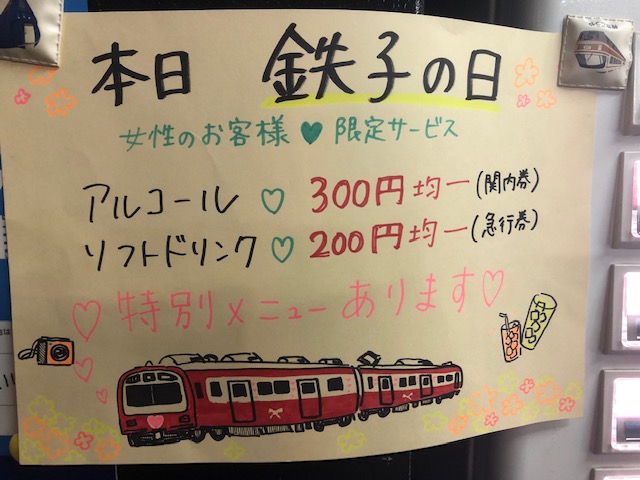 本日 鉄子の日
女性のお客様♥限定サービス
アルコール ♡ 300円均一(関内券)
ソフトドリンク♡ 200円均一(急行券)
♡特別メニューあります♡